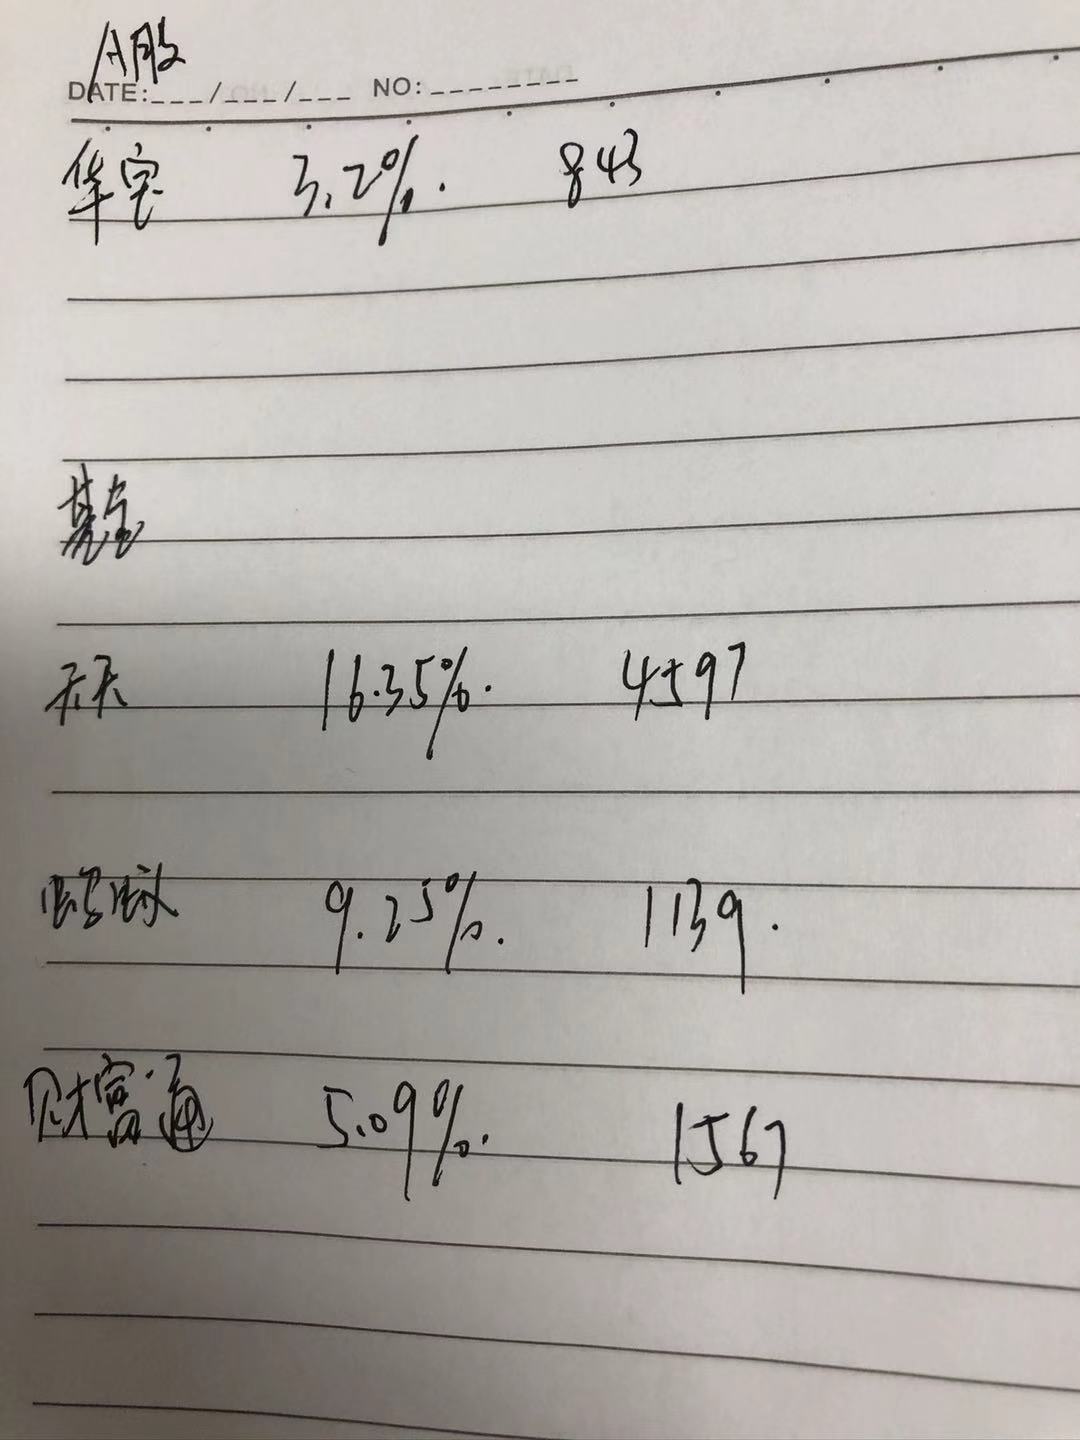 A股
DATE:___/___/___ NO:________
华宝 3.2%. 843
基金
天天 16.35%. 4597
9.25%. 1139.
财富通 5.09%. 1567